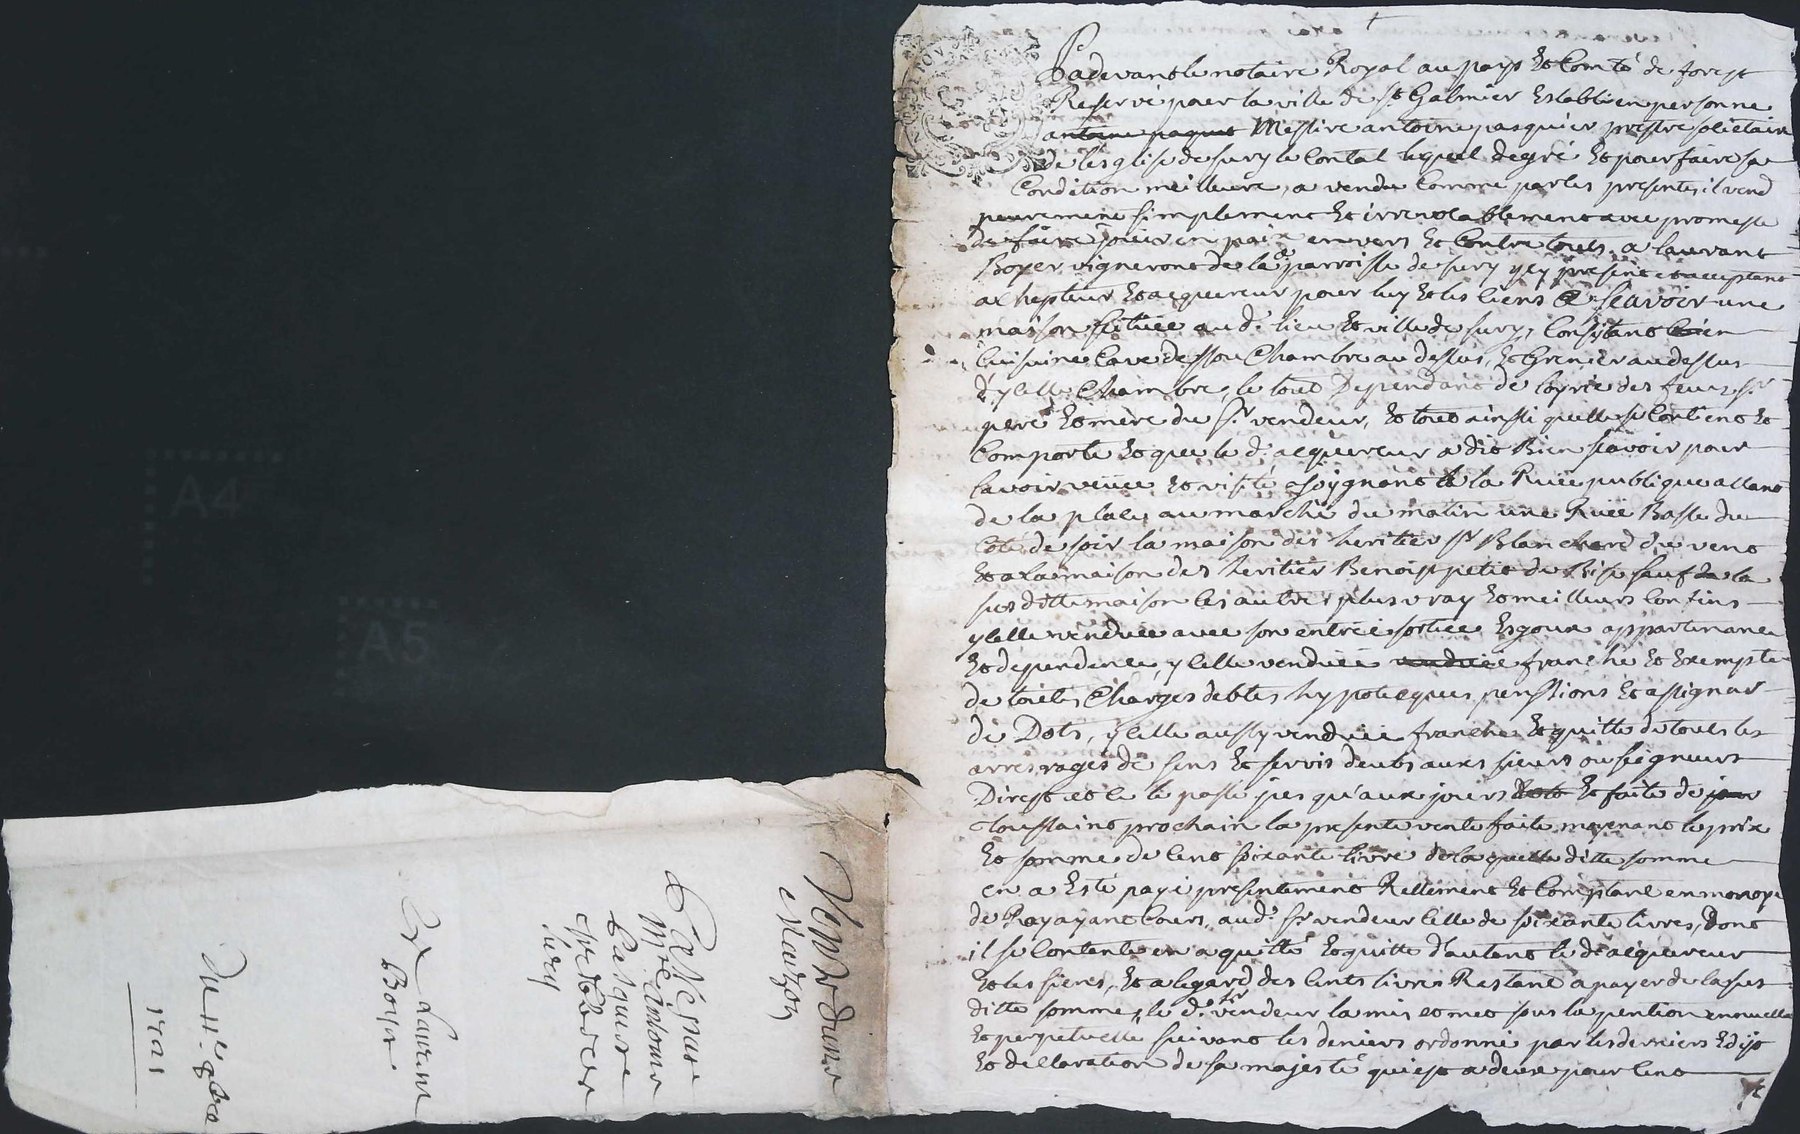 Pardevant le notaire Royal au pays Et Comté de forest
Reservé pour la ville de st Galmier Establi en personne
antoine paquet Messire antoine pasquier prestre solietaire
de lesglise de sury le Contal lequel de gré Et pour faire sa
Condition meilleure, a vendu Comme par les presentes il vend
purement simplement Et irrevocablement avec promesse
de faire jouir en paix envers Et Contre touts a laurant
Boyer vigneront de la parroisse de sury y cy present et acceptant
achepteur Et acquereur pour luy Et les siens sçavoir une
maison situee aud. lieu Et ville de sury, Consistant en
Cuisine Cave dessou Chambre au dessus, Et Grenier au dessus
d'ycelle Chambre, le tout Dependant de loyrie des feus sr
pere Et mere du sr vendeur, Et tout ainsi quelle se Contient Et
Comporte Et que le d. acquereur a dit Bien sçavoir pour
lavoir veüe Et visité joignant la Ruüe publique allant
de la place au marché du matin une Ruüe Basse du
Coté de soir la maison des heritier sr Blanchard du vent
Et a la maison des heritier Benoist petit de Bise sauf de la
susditte maison les autres plus vray Et meilleurs Confins
ycelle venduee avec son entréé sortiee Esgoux appartenance
Et dependence, ycelle venduée venduée franche Et Exempte
de toutes Charges debtes hypotecques penssions Et assignar
de Dots, ycelle aussy venduée franche Et quitte de touts les
arresrages de sens Et servis deubs aux sieurs ou seigneurs
Direct et ce le passé jusqu'aux jours Et faite de jour
Toussaint prochain la presente vente faite moyenant le prix
Et somme de Cent soixante livre de laquelle ditte somme
en a Esté payé presentement Rellement Et Comptant en monoye
de Roy ayant Cours, aud. sr vendeur Celle de soixante livres, Dont
il se Contente en a quitté Et quitte d'autant le d. acquereur
Et les siens, Et a legard des Cents livres Restant a payer de la sus
ditte somme, le d. sr vendeur la mis et met sous la pention annuelle
Et perpetuelle suivant les deniers ordonné par les derniers Edist
Et dellaration de sa majesté qui est a deux pour Cent
Vente dune
Maizon
Passé par
Mre antoine
Pasquier
prebstre
sury
Et Laurent
Boyer
Du 11e 8bre
1721